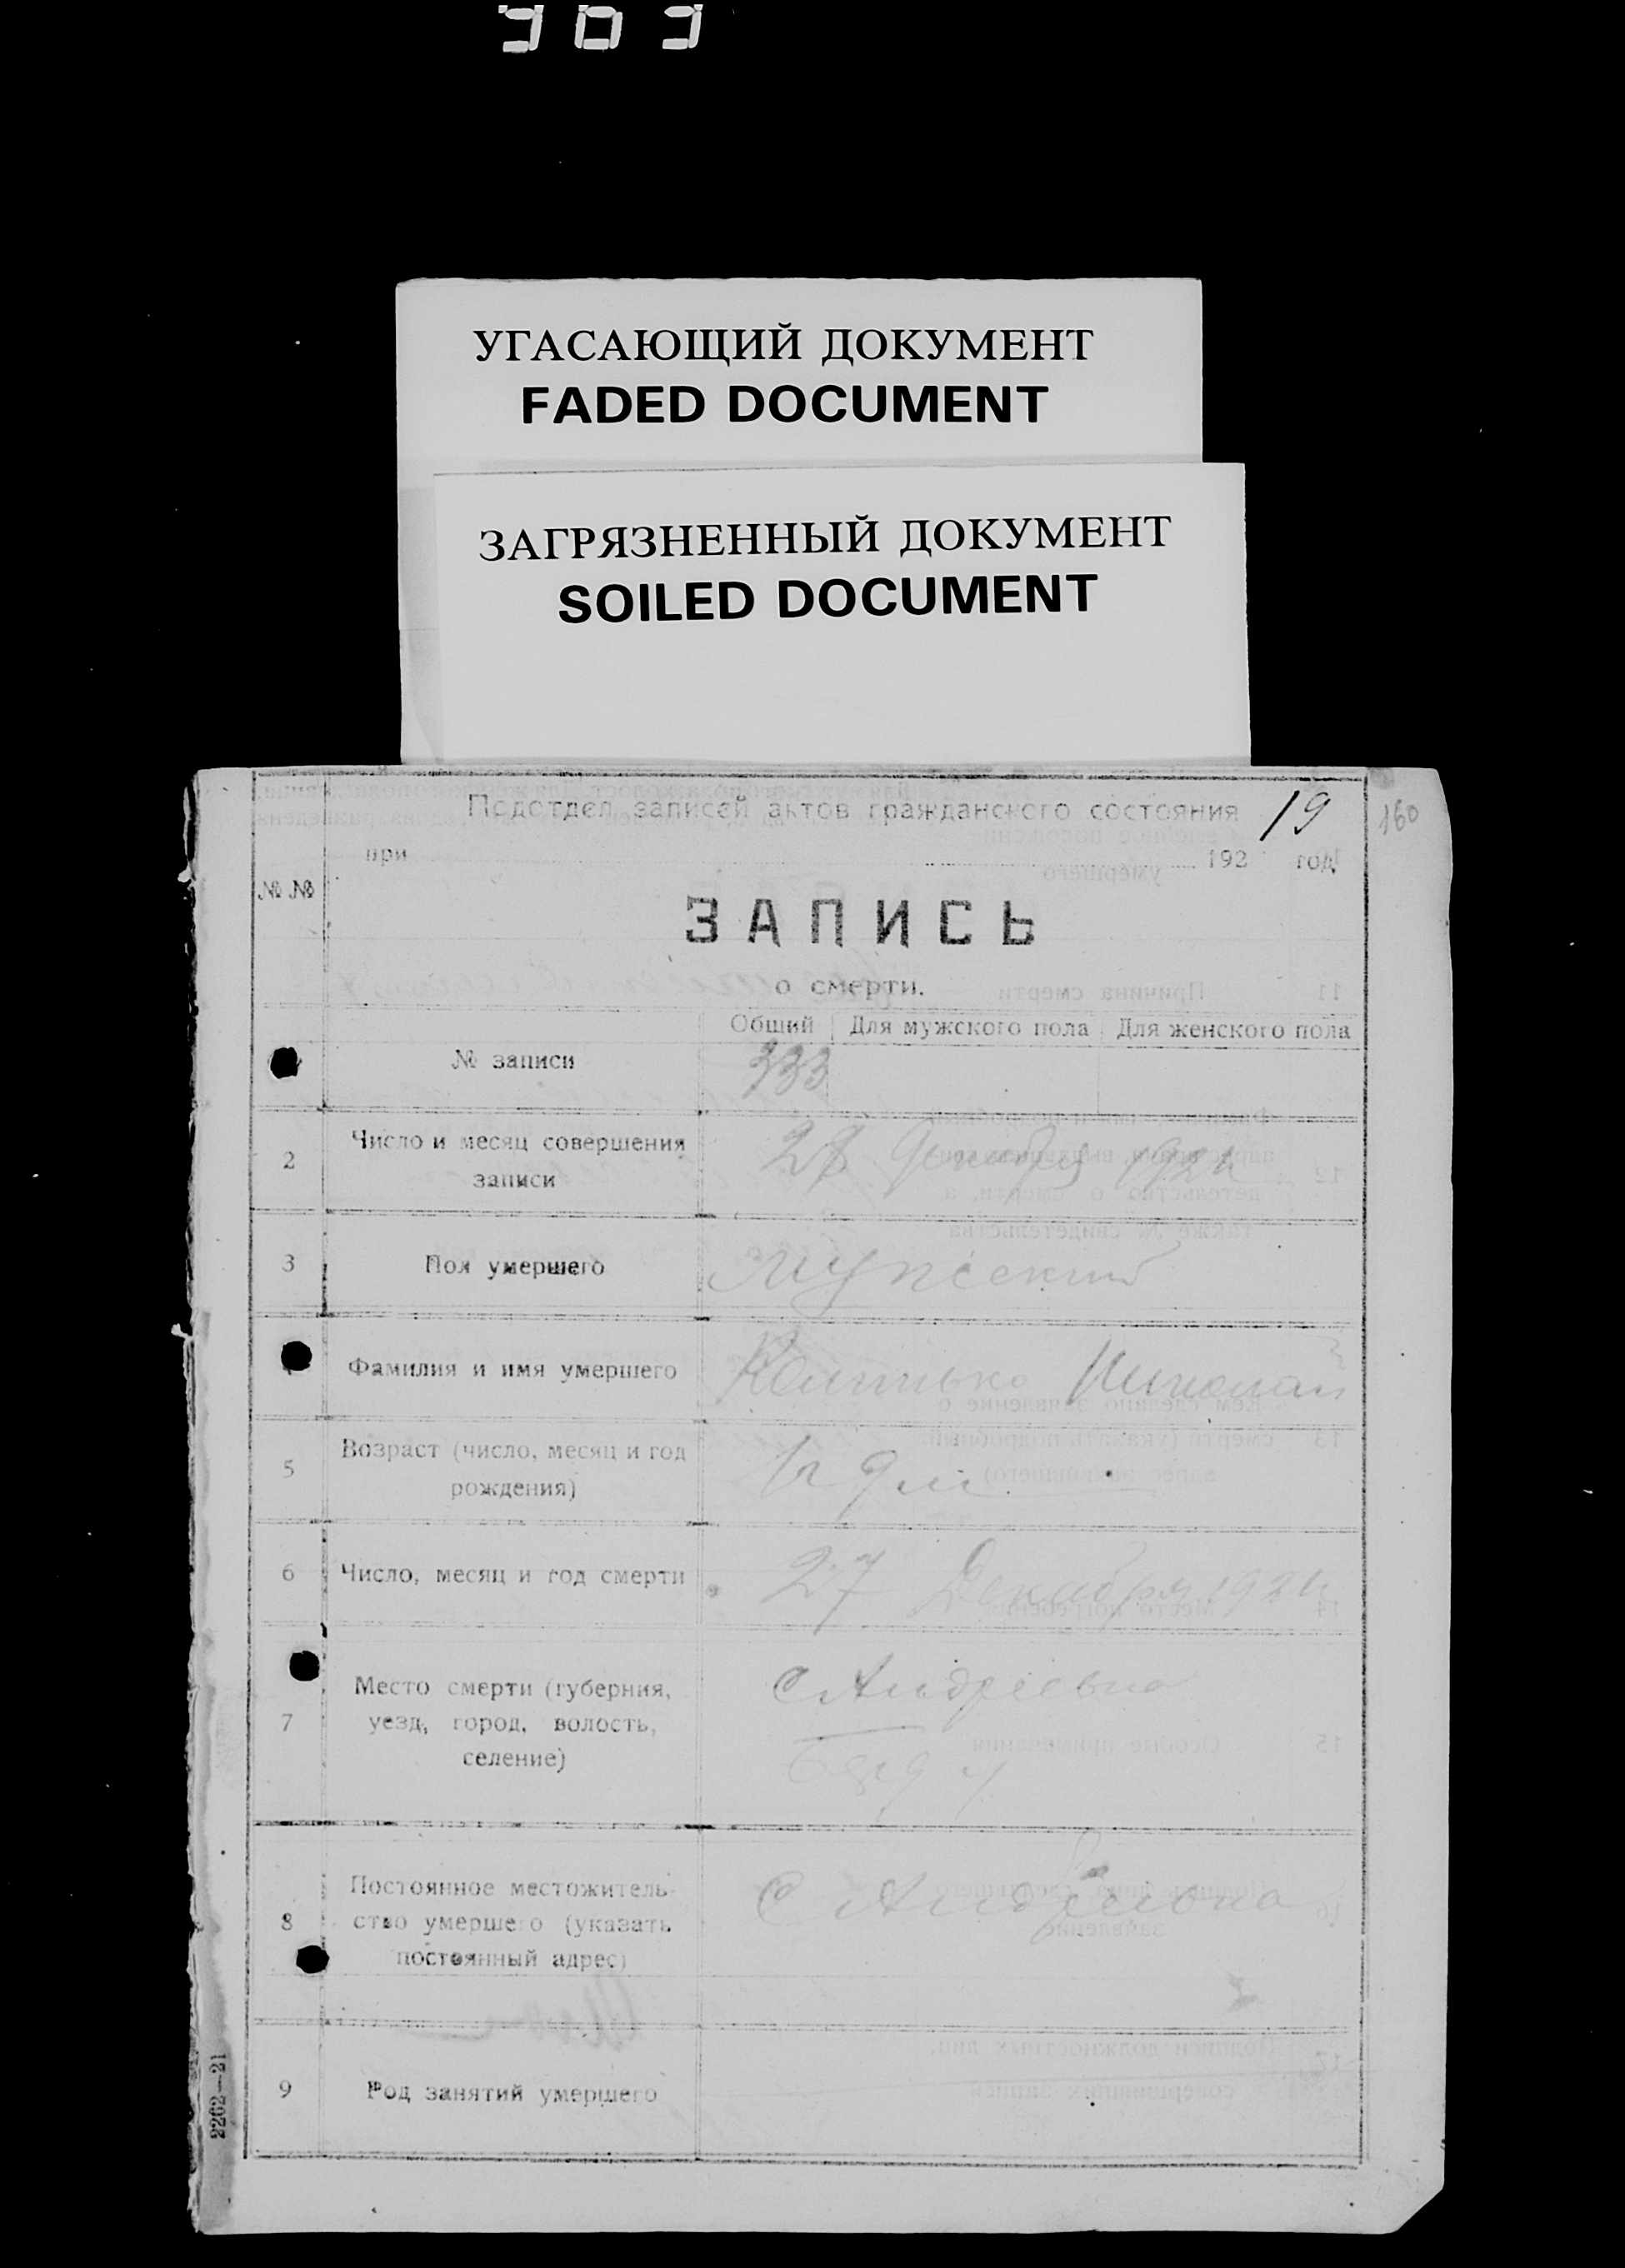 УГАСАЮЩИЙ ДОКУМЕНТ
FADED DOCUMENT
ЗАГРЯЗНЕННЫЙ ДОКУМЕНТ
SOILED DOCUMENT
Подотдел записей актов гражданского состояния 19 160
при 192 год
№ №
ЗАПИСЬ
о смерти.
Общий Для мужского пола Для женского пола
№ записи 333
2 Число и месяц совершения
записи
28 Декабря 192
3 Пол умершего Мужской
Фамилия и имя умершего Николай
5 Возраст (число, месяц и год
рождения)
6 Число, месяц и год смерти 27 Декабря 192
7 Место смерти (губерния,
уезд, город, волость,
селение)
С Андреевка
8 Постоянное местожитель-
ство умершего (указать
постоянный адрес)
С Андреевка
9 Род занятий умершего
2262—21